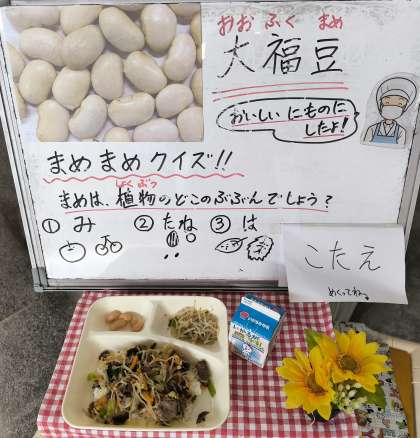 おおふくまめ
大福豆
おいしいにものに
したよ!
まめまめクイズ!!
しょくぶつ
まめは、植物のどこのぶぶんでしょう?
①み ②たね ③は
こたえ
めくってね